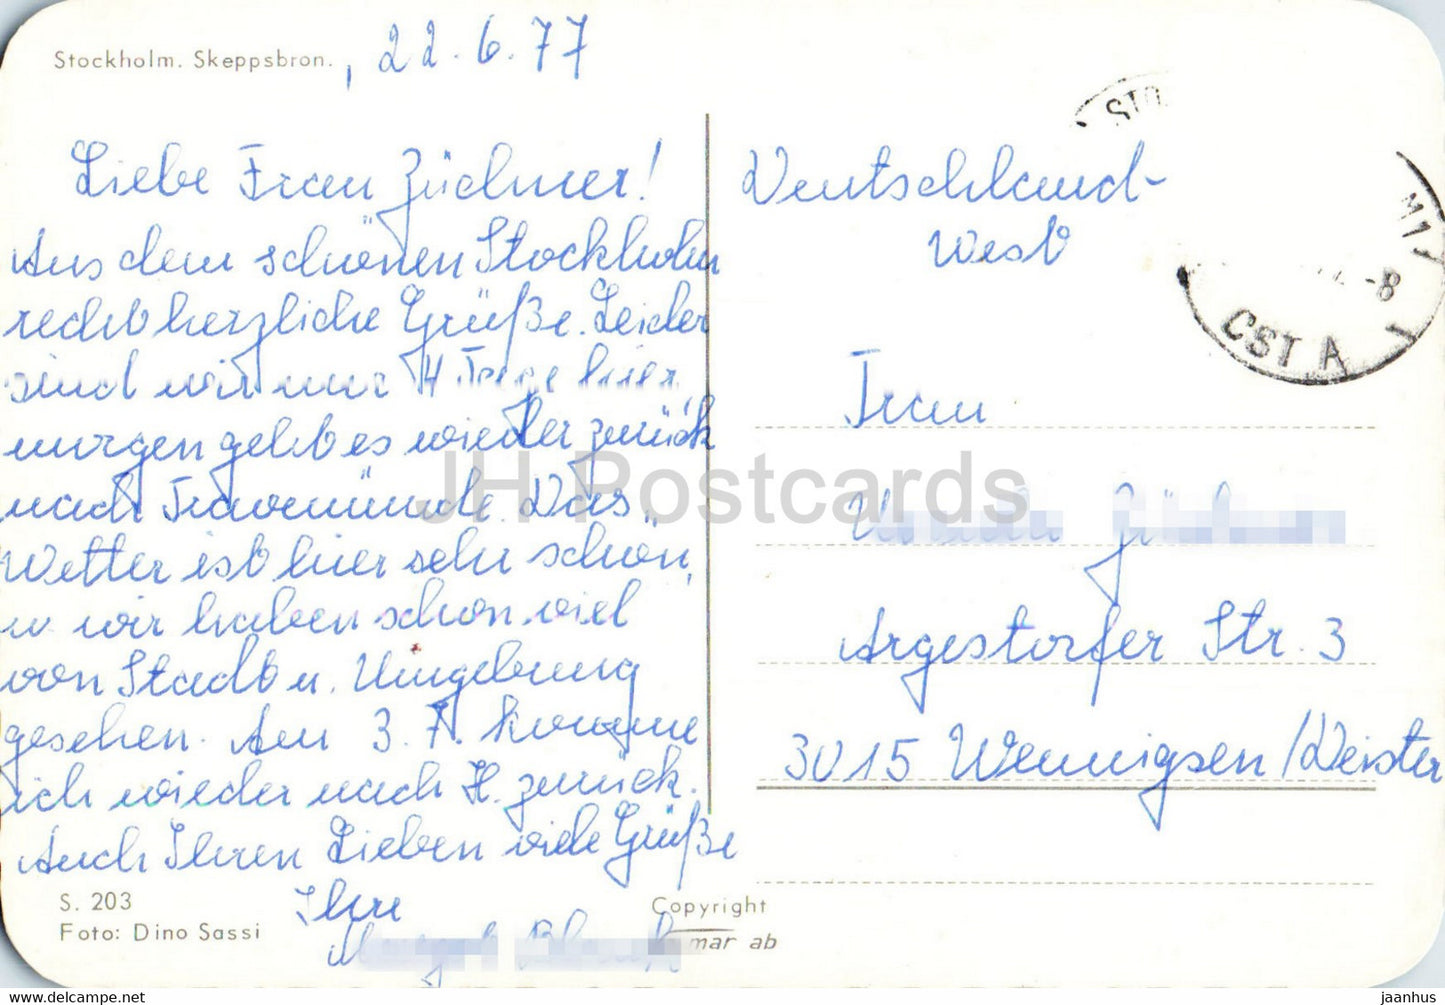 Stockholm. Skeppsbron.
, 22.6.77
Liebe Frau Züchner!
Aus dem schönen Stockholm
recht herzliche Grüße. Leider
sind wir nur 4 Tage hier,
morgen geht es wieder zurück
nach Travemünde. Das
Wetter ist hier sehr schön,
u wir haben schon viel
von Stadt u. Umgebung
gesehen. Am 3.7. komme
ich wieder nach H. zurück.
Auch Ihren Lieben viele Grüße
Ihre
S. 203
Foto: Dino Sassi
Copyright
mar ab
STO
M17
-8
CSTA 1
Deutschland-
West
Frau
Argestorfer Str. 3
3015 Wennigsen/Deister
JH Postcards
www.delcampe.net
jaanhus